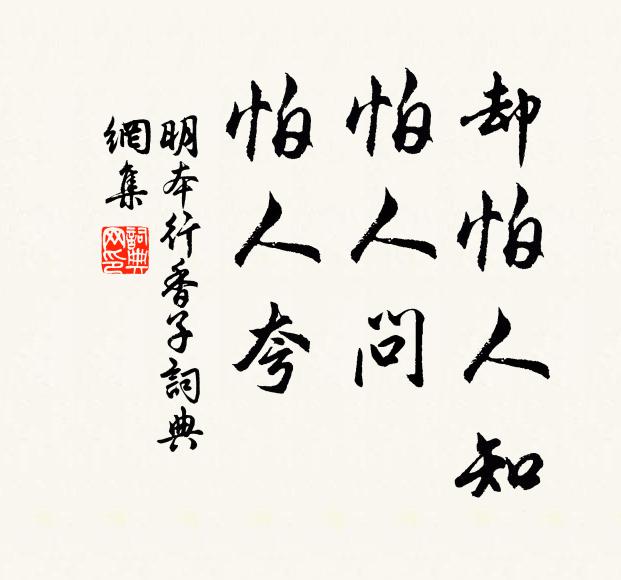 却怕人知
怕人問
怕人夸
明本行香子詞典
網集
詞典
网印